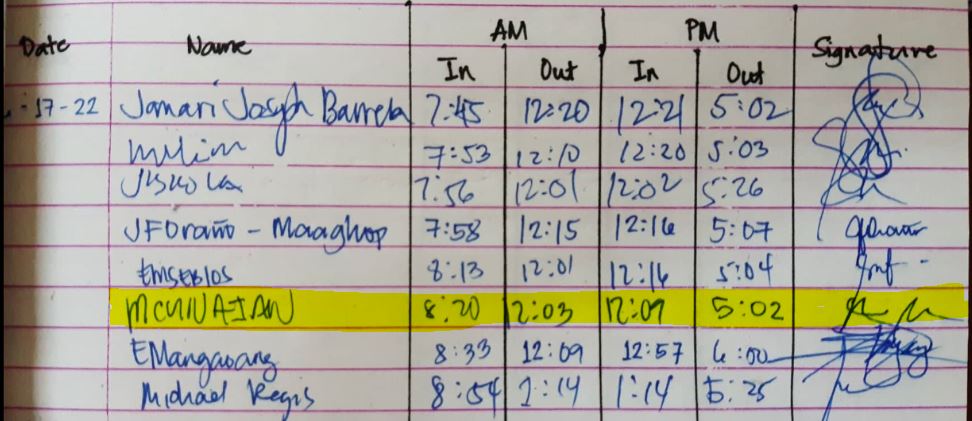 AM PM
Date Name In Out In Out Signature
-17-22 Jamari Joseph Barrela 7:45 12:20 12:21 5:02
7:53 12:10 12:20 5:03
7:56 12:01 12:02 5:26
JFOraño - Maaghop 7:58 12:15 12:16 5:07
EMSEBIOS 8:13 12:01 12:16 5:04
8:20 12:03 12:09 5:02
EMangawang 8:33 12:09 12:57 6:00
Michael Regis 8:54 1:14 1:14 5:25